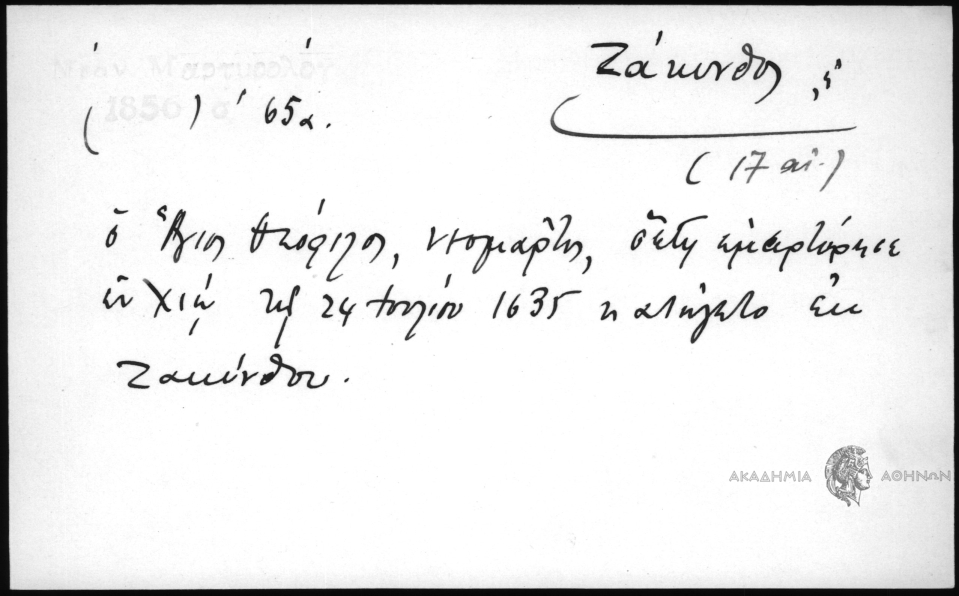 Νέον Μαρτυρολόγ.
1850 σ
( ) 65α.
Ζάκυνθος, ἡ
(17 αἰ.)
ὁ Ἅγιος Θεόφιλος, νεομάρτυς, ὅστις ἐμαρτύρησε
ἐν Χίῳ τῇ 24 Ἰουλίου 1635 κατήγετο ἐκ
Ζακύνθου.
ΑΚΑΔΗΜΙΑ ΑΘΗΝΩΝ